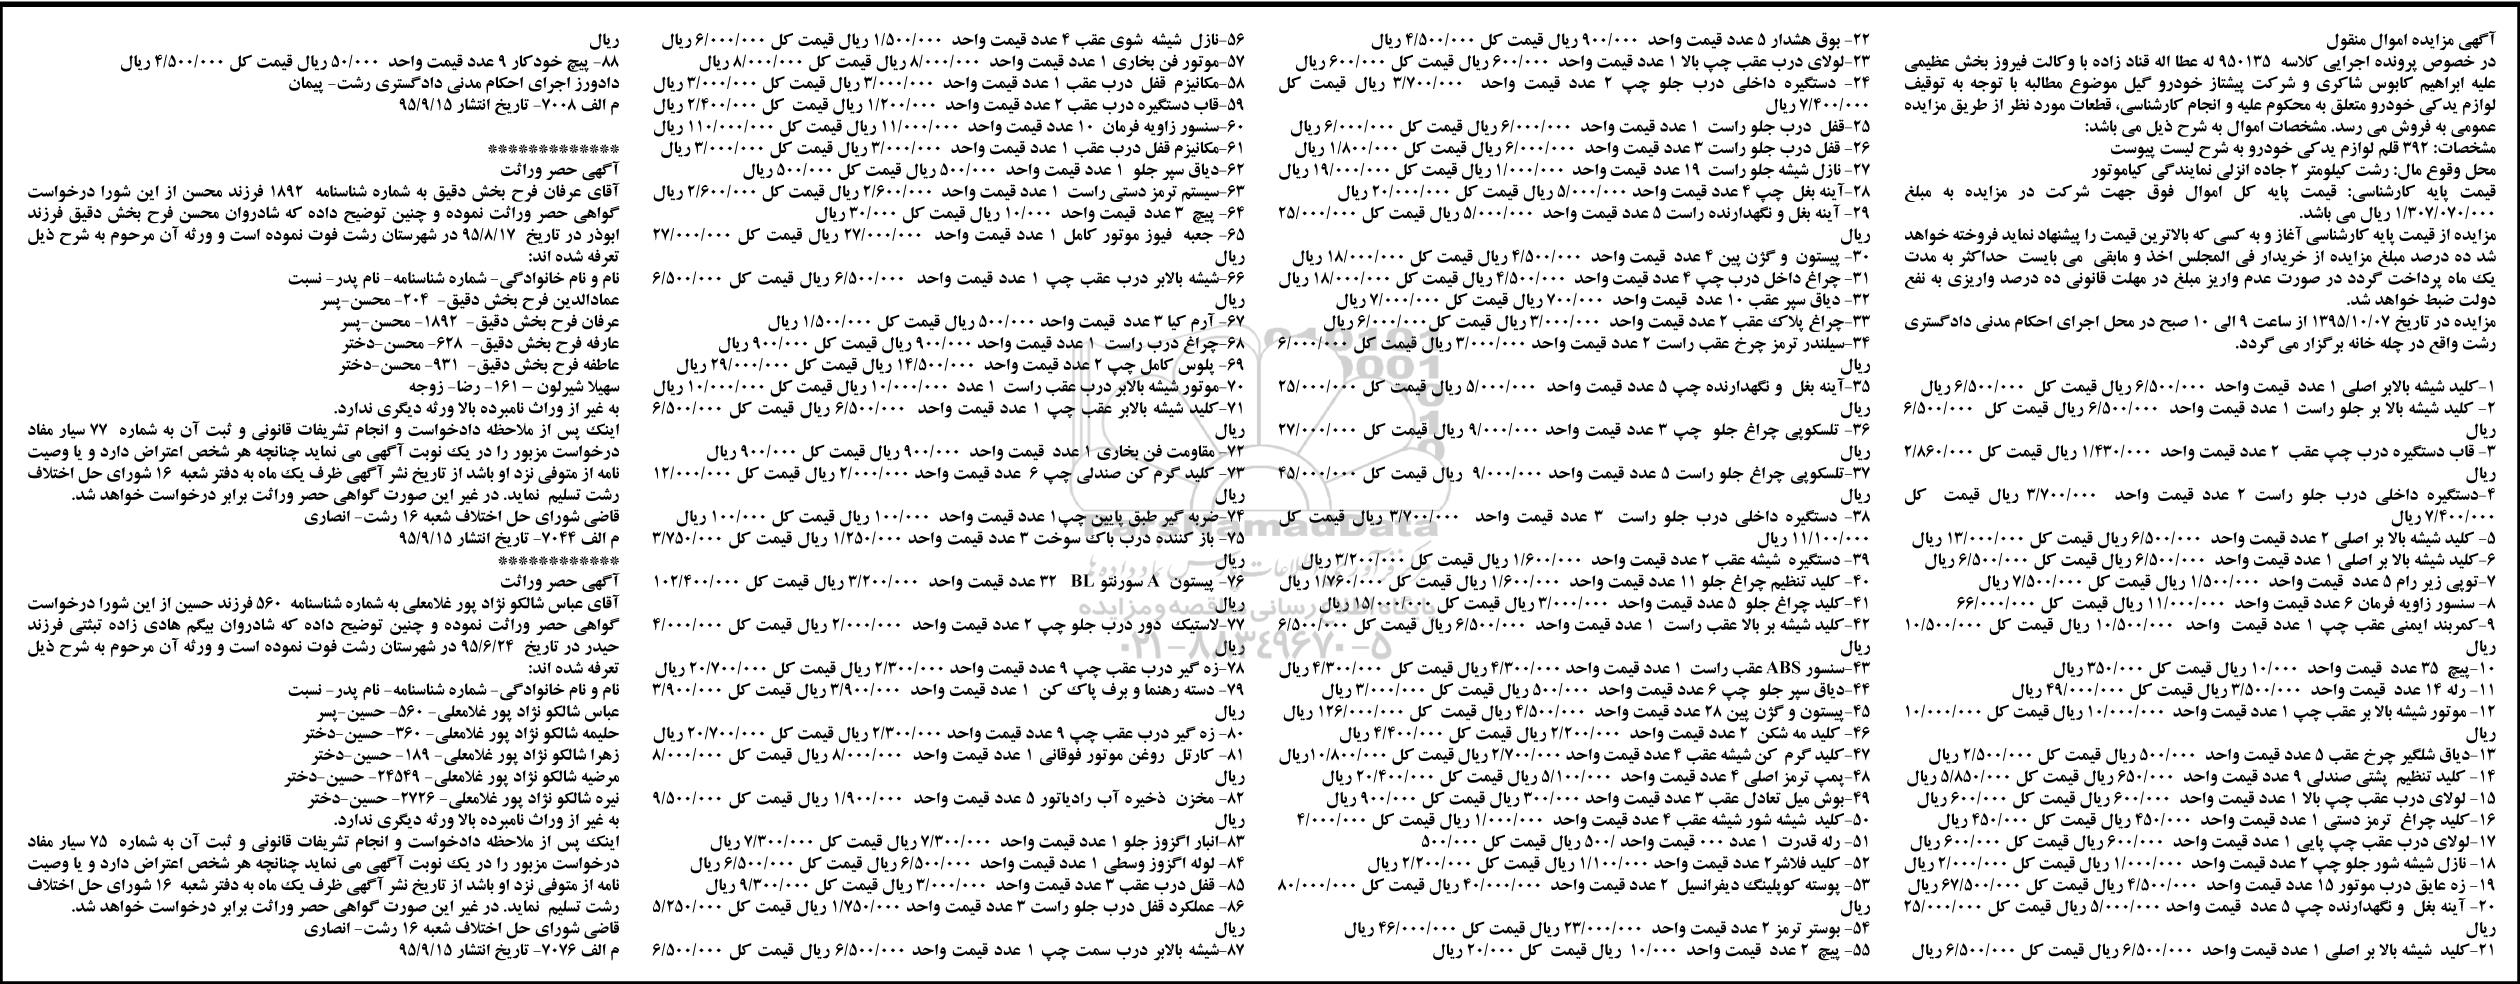 آگهی مزایده اموال منقول
در خصوص پرونده اجرایی کلاسه ۹۵۰۱۳۵ له عطا اله قناد زاده با وکالت فیروز بخش عظیمی
علیه ابراهیم کابوس شاکری و شرکت پیشتاز خودرو گیل موضوع مطالبه با توجه به توقیف
لوازم یدکی خودرو متعلق به محکوم علیه و انجام کارشناسی، قطعات مورد نظر از طریق مزایده
عمومی به فروش می رسد. مشخصات اموال به شرح ذیل می باشد:
مشخصات: ۳۹۲ قلم لوازم یدکی خودرو به شرح لیست پیوست
محل وقوع مال: رشت کیلومتر ۲ جاده انزلی نمایندگی کیاموتور
قیمت پایه کارشناسی: قیمت پایه کل اموال فوق جهت شرکت در مزایده به مبلغ
۱/۳۰۷/۰۷۰/۰۰۰ ریال می باشد.
مزایده از قیمت پایه کارشناسی آغاز و به کسی که بالاترین قیمت را پیشنهاد نماید فروخته خواهد
شد ده درصد مبلغ مزایده از خریدار فی المجلس اخذ و مابقی می بایست حداکثر به مدت
یک ماه پرداخت گردد در صورت عدم واریز مبلغ در مهلت قانونی ده درصد واریزی به نفع
دولت ضبط خواهد شد.
مزایده در تاریخ ۱۳۹۵/۱۰/۰۷ از ساعت ۹ الی ۱۰ صبح در محل اجرای احکام مدنی دادگستری
رشت واقع در چله خانه برگزار می گردد.
۱-کلید شیشه بالابر اصلی ۱ عدد قیمت واحد ۶/۵۰۰/۰۰۰ ریال قیمت کل ۶/۵۰۰/۰۰۰ ریال
۲- کلید شیشه بالا بر جلو راست ۱ عدد قیمت واحد ۶/۵۰۰/۰۰۰ ریال قیمت کل ۶/۵۰۰/۰۰۰
ریال
۳- قاب دستگیره درب چپ عقب ۲ عدد قیمت واحد ۱/۴۳۰/۰۰۰ ریال قیمت کل ۲/۸۶۰/۰۰۰
ریال
۴-دستگیره داخلی درب جلو راست ۲ عدد قیمت واحد ۳/۷۰۰/۰۰۰ ریال قیمت کل
۷/۴۰۰/۰۰۰ ریال
۵- کلید شیشه بالا بر اصلی ۲ عدد قیمت واحد ۶/۵۰۰/۰۰۰ ریال قیمت کل ۱۳/۰۰۰/۰۰۰ ریال
۶-کلید شیشه بالا بر اصلی ۱ عدد قیمت واحد ۶/۵۰۰/۰۰۰ ریال قیمت کل ۶/۵۰۰/۰۰۰ ریال
۷-توپی زیر رام ۵ عدد قیمت واحد ۱/۵۰۰/۰۰۰ ریال قیمت کل ۷/۵۰۰/۰۰۰ ریال
۸- سنسور زاویه فرمان ۶ عدد قیمت واحد ۱۱/۰۰۰/۰۰۰ ریال قیمت کل ۶۶/۰۰۰/۰۰۰
۹-کمربند ایمنی عقب چپ ۱ عدد قیمت واحد ۱۰/۵۰۰/۰۰۰ ریال قیمت کل ۱۰/۵۰۰/۰۰۰
ریال
۱۰-پیچ ۳۵ عدد قیمت واحد ۱۰/۰۰۰ ریال قیمت کل ۳۵۰/۰۰۰ ریال
۱۱- رله ۱۴ عدد قیمت واحد ۳/۵۰۰/۰۰۰ ریال قیمت کل ۴۹/۰۰۰/۰۰۰ ریال
۱۲- موتور شیشه بالا بر عقب چپ ۱ عدد قیمت واحد ۱۰/۰۰۰/۰۰۰ ریال قیمت کل ۱۰/۰۰۰/۰۰۰
ریال
۱۳-دیاق شلگیر چرخ عقب ۵ عدد قیمت واحد ۵۰۰/۰۰۰ ریال قیمت کل ۲/۵۰۰/۰۰۰ ریال
۱۴- کلید تنظیم پشتی صندلی ۹ عدد قیمت واحد ۶۵۰/۰۰۰ ریال قیمت کل ۵/۸۵۰/۰۰۰ ریال
۱۵- لولای درب عقب چپ بالا ۱ عدد قیمت واحد ۶۰۰/۰۰۰ ریال قیمت کل ۶۰۰/۰۰۰ ریال
۱۶-کلید چراغ ترمز دستی ۱ عدد قیمت واحد ۴۵۰/۰۰۰ ریال قیمت کل ۴۵۰/۰۰۰ ریال
۱۷-لولای درب عقب چپ پایی ۱ عدد قیمت واحد ۶۰۰/۰۰۰ ریال قیمت کل ۶۰۰/۰۰۰ ریال
۱۸- نازل شیشه شور جلو چپ ۲ عدد قیمت واحد ۱/۰۰۰/۰۰۰ ریال قیمت کل ۲/۰۰۰/۰۰۰ ریال
۱۹- زه عایق درب موتور ۱۵ عدد قیمت واحد ۴/۵۰۰/۰۰۰ ریال قیمت کل ۶۷/۵۰۰/۰۰۰ ریال
۲۰- آینه بغل و نگهدارنده چپ ۵ عدد قیمت واحد ۵/۰۰۰/۰۰۰ ریال قیمت کل ۲۵/۰۰۰/۰۰۰
ریال
۲۱-کلید شیشه بالا بر اصلی ۱ عدد قیمت واحد ۶/۵۰۰/۰۰۰ ریال قیمت کل ۶/۵۰۰/۰۰۰ ریال
۲۲- بوق هشدار ۵ عدد قیمت واحد ۹۰۰/۰۰۰ ریال قیمت کل ۴/۵۰۰/۰۰۰ ریال
۲۳-لولای درب عقب چپ بالا ۱ عدد قیمت واحد ۶۰۰/۰۰۰ ریال قیمت کل ۶۰۰/۰۰۰ ریال
۲۴- دستگیره داخلی درب جلو چپ ۲ عدد قیمت واحد ۳/۷۰۰/۰۰۰ ریال قیمت کل
۷/۴۰۰/۰۰۰ ریال
۲۵-قفل درب جلو راست ۱ عدد قیمت واحد ۶/۰۰۰/۰۰۰ ریال قیمت کل ۶/۰۰۰/۰۰۰ ریال
۲۶- قفل درب جلو راست ۳ عدد قیمت واحد ۶/۰۰۰/۰۰۰ ریال قیمت کل ۱/۸۰۰/۰۰۰ ریال
۲۷- نازل شیشه جلو راست ۱۹ عدد قیمت واحد ۱/۰۰۰/۰۰۰ ریال قیمت کل ۱۹/۰۰۰/۰۰۰ ریال
۲۸-آینه بغل چپ ۴ عدد قیمت واحد ۵/۰۰۰/۰۰۰ ریال قیمت کل ۲۰/۰۰۰/۰۰۰ ریال
۲۹- آینه بغل و نگهدارنده راست ۵ عدد قیمت واحد ۵/۰۰۰/۰۰۰ ریال قیمت کل ۲۵/۰۰۰/۰۰۰
ریال
۳۰- پیستون و گژن پین ۴ عدد قیمت واحد ۴/۵۰۰/۰۰۰ ریال قیمت کل ۱۸/۰۰۰/۰۰۰ ریال
۳۱- چراغ داخل درب چپ ۴ عدد قیمت واحد ۴/۵۰۰/۰۰۰ ریال قیمت کل ۱۸/۰۰۰/۰۰۰ ریال
۳۲- دیاق سپر عقب ۱۰ عدد قیمت واحد ۷۰۰/۰۰۰ ریال قیمت کل ۷/۰۰۰/۰۰۰ ریال
۳۳-چراغ پلاک عقب ۲ عدد قیمت واحد ۳/۰۰۰/۰۰۰ ریال قیمت کل ۶/۰۰۰/۰۰۰ ریال
۳۴-سیلندر ترمز چرخ عقب راست ۲ عدد قیمت واحد ۳/۰۰۰/۰۰۰ ریال قیمت کل ۶/۰۰۰/۰۰۰
ریال
۳۵-آینه بغل و نگهدارنده چپ ۵ عدد قیمت واحد ۵/۰۰۰/۰۰۰ ریال قیمت کل ۲۵/۰۰۰/۰۰۰
ریال
۳۶- تلسکوپی چراغ جلو چپ ۳ عدد قیمت واحد ۹/۰۰۰/۰۰۰ ریال قیمت کل ۲۷/۰۰۰/۰۰۰
ریال
۳۷-تلسکوپی چراغ جلو راست ۵ عدد قیمت واحد ۹/۰۰۰/۰۰۰ ریال قیمت کل ۴۵/۰۰۰/۰۰۰
ریال
۳۸- دستگیره داخلی درب جلو راست ۳ عدد قیمت واحد ۳/۷۰۰/۰۰۰ ریال قیمت کل
۱۱/۱۰۰/۰۰۰ ریال
۳۹- دستگیره شیشه عقب ۲ عدد قیمت واحد ۱/۶۰۰/۰۰۰ ریال قیمت کل ۳/۲۰۰/۰۰۰ ریال
۴۰- کلید تنظیم چراغ جلو ۱۱ عدد قیمت واحد ۱/۶۰۰/۰۰۰ ریال قیمت کل ۱/۷۶۰/۰۰۰ ریال
۴۱-کلید چراغ جلو ۵ عدد قیمت واحد ۳/۰۰۰/۰۰۰ ریال قیمت کل ۱۵/۰۰۰/۰۰۰ ریال
۴۲-کلید شیشه بر بالا عقب راست ۱ عدد قیمت واحد ۶/۵۰۰/۰۰۰ ریال قیمت کل ۶/۵۰۰/۰۰۰
ریال
۴۳-سنسور ABS عقب راست ۱ عدد قیمت واحد ۴/۳۰۰/۰۰۰ ریال قیمت کل ۴/۳۰۰/۰۰۰ ریال
۴۴-دیاق سپر جلو چپ ۶ عدد قیمت واحد ۵۰۰/۰۰۰ ریال قیمت کل ۳/۰۰۰/۰۰۰ ریال
۴۵-پیستون و گژن پین ۲۸ عدد قیمت واحد ۴/۵۰۰/۰۰۰ ریال قیمت کل ۱۲۶/۰۰۰/۰۰۰ ریال
۴۶- کلید مه شکن ۲ عدد قیمت واحد ۲/۲۰۰/۰۰۰ ریال قیمت کل ۴/۴۰۰/۰۰۰
۴۷-کلید گرم کن شیشه عقب ۴ عدد قیمت واحد ۲/۷۰۰/۰۰۰ ریال قیمت کل ۱۰/۸۰۰/۰۰۰ریال
۴۸-پمپ ترمز اصلی ۴ عدد قیمت واحد ۵/۱۰۰/۰۰۰ ریال قیمت کل ۲۰/۴۰۰/۰۰۰ ریال
۴۹-بوش میل تعادل عقب ۳ عدد قیمت واحد ۳۰۰/۰۰۰ ریال قیمت کل ۹۰۰/۰۰۰ ریال
۵۰-کلید شیشه شور شیشه عقب ۴ عدد قیمت واحد ۱/۰۰۰/۰۰۰ ریال قیمت کل ۴/۰۰۰/۰۰۰
۵۱- رله قدرت ۱ عدد ۰۰۰ قیمت واحد /۵۰۰ ریال قیمت کل ۵۰۰/۰۰۰
۵۲- کلید فلاشر۲ عدد قیمت واحد ۱/۱۰۰/۰۰۰ ریال قیمت کل ۲/۲۰۰/۰۰۰ ریال
۵۳- پوسته کوپلینگ دیفرانسیل ۲ عدد قیمت واحد ۴۰/۰۰۰/۰۰۰ ریال قیمت کل ۸۰/۰۰۰/۰۰۰
ریال
۵۴- بوستر ترمز ۲ عدد قیمت واحد ۲۳/۰۰۰/۰۰۰ ریال قیمت کل ۴۶/۰۰۰/۰۰۰ ریال
۵۵- پیچ ۲ عدد قیمت واحد ۱۰/۰۰۰ ریال قیمت کل ۲۰/۰۰۰ ریال
۵۶-نازل شیشه شوی عقب ۴ عدد قیمت واحد ۱/۵۰۰/۰۰۰ ریال قیمت کل ۶/۰۰۰/۰۰۰ ریال
۵۷-موتور فن بخاری ۱ عدد قیمت واحد ۸/۰۰۰/۰۰۰ ریال قیمت کل ۸/۰۰۰/۰۰۰ ریال
۵۸-مکانیزم قفل درب عقب ۱ عدد قیمت واحد ۳/۰۰۰/۰۰۰ ریال قیمت کل ۳/۰۰۰/۰۰۰ ریال
۵۹-قاب دستگیره درب عقب ۲ عدد قیمت واحد ۱/۲۰۰/۰۰۰ ریال قیمت کل ۲/۴۰۰/۰۰۰ ریال
۶۰-سنسور زاویه فرمان ۱۰ عدد قیمت واحد ۱۱/۰۰۰/۰۰۰ ریال قیمت کل ۱۱۰/۰۰۰/۰۰۰ ریال
۶۱-مکانیزم قفل درب عقب ۱ عدد قیمت واحد ۳/۰۰۰/۰۰۰ ریال قیمت کل ۳/۰۰۰/۰۰۰ ریال
۶۲-دیاق سپر جلو ۱ عدد قیمت واحد ۵۰۰/۰۰۰ ریال قیمت کل ۵۰۰/۰۰۰ ریال
۶۳-سیستم ترمز دستی راست ۱ عدد قیمت واحد ۲/۶۰۰/۰۰۰ ریال قیمت کل ۲/۶۰۰/۰۰۰ ریال
۶۴- پیچ ۳ عدد قیمت واحد ۱۰/۰۰۰ ریال قیمت کل ۳۰/۰۰۰ ریال
۶۵- جعبه فیوز موتور کامل ۱ عدد قیمت واحد ۲۷/۰۰۰/۰۰۰ ریال قیمت کل ۲۷/۰۰۰/۰۰۰
ریال
۶۶-شیشه بالابر درب عقب چپ ۱ عدد قیمت واحد ۶/۵۰۰/۰۰۰ ریال قیمت کل ۶/۵۰۰/۰۰۰
ریال
۶۷- آرم کیا ۳ عدد قیمت واحد ۵۰۰/۰۰۰ ریال قیمت کل ۱/۵۰۰/۰۰۰ ریال
۶۸-چراغ درب راست ۱ عدد قیمت واحد ۹۰۰/۰۰۰ ریال قیمت کل ۹۰۰/۰۰۰ ریال
۶۹- پلوس کامل چپ ۲ عدد قیمت واحد ۱۴/۵۰۰/۰۰۰ ریال قیمت کل ۲۹/۰۰۰/۰۰۰ ریال
۷۰-موتور شیشه بالابر درب عقب راست ۱ عدد ۱۰/۰۰۰/۰۰۰ ریال قیمت کل ۱۰/۰۰۰/۰۰۰ ریال
۷۱-کلید شیشه بالابر عقب چپ ۱ عدد قیمت واحد ۶/۵۰۰/۰۰۰ ریال قیمت کل ۶/۵۰۰/۰۰۰
ریال
۷۲- مقاومت فن بخاری ۱ عدد قیمت واحد ۹۰۰/۰۰۰ ریال قیمت کل ۹۰۰/۰۰۰ ریال
۷۳- کلید گرم کن صندلی چپ ۶ عدد قیمت واحد ۲/۰۰۰/۰۰۰ ریال قیمت کل ۱۲/۰۰۰/۰۰۰
ریال
۷۴-ضربه گیر طبق پایین چپ۱ عدد قیمت واحد ۱۰۰/۰۰۰ ریال قیمت کل ۱۰۰/۰۰۰ ریال
۷۵- باز کننده درب باک سوخت ۳ عدد قیمت واحد ۱/۲۵۰/۰۰۰ ریال قیمت کل ۳/۷۵۰/۰۰۰
ریال
۷۶- پیستون A سورنتو BL ۳۲ عدد قیمت واحد ۳/۲۰۰/۰۰۰ ریال قیمت کل ۱۰۲/۴۰۰/۰۰۰
ریال
۷۷-لاستیک دور درب جلو چپ ۲ عدد قیمت واحد ۲/۰۰۰/۰۰۰ ریال قیمت کل ۴/۰۰۰/۰۰۰
ریال
۷۸-زه گیر درب عقب چپ ۹ عدد قیمت واحد ۲/۳۰۰/۰۰۰ ریال قیمت کل ۲۰/۷۰۰/۰۰۰ ریال
۷۹- دسته رهنما و برف پاک کن ۱ عدد قیمت واحد ۳/۹۰۰/۰۰۰ ریال قیمت کل ۳/۹۰۰/۰۰۰
ریال
۸۰- زه گیر درب عقب چپ ۹ عدد قیمت واحد ۲/۳۰۰/۰۰۰ ریال قیمت کل ۲۰/۷۰۰/۰۰۰ ریال
۸۱- کارتل روغن موتور فوقانی ۱ عدد قیمت واحد ۸/۰۰۰/۰۰۰ ریال قیمت کل ۸/۰۰۰/۰۰۰
ریال
۸۲- مخزن ذخیره آب رادیاتور ۵ عدد قیمت واحد ۱/۹۰۰/۰۰۰ ریال قیمت کل ۹/۵۰۰/۰۰۰
ریال
۸۳-انبار اگزوز جلو ۱ عدد قیمت واحد ۷/۳۰۰/۰۰۰ ریال قیمت کل ۷/۳۰۰/۰۰۰ ریال
۸۴- لوله اگزوز وسطی ۱ عدد قیمت واحد ۶/۵۰۰/۰۰۰ ریال قیمت کل ۶/۵۰۰/۰۰۰ ریال
۸۵- قفل درب عقب ۳ عدد قیمت واحد ۳/۰۰۰/۰۰۰ ریال قیمت کل ۹/۳۰۰/۰۰۰ ریال
۸۶- عملکرد قفل درب جلو راست ۳ عدد قیمت واحد ۱/۷۵۰/۰۰۰ ریال قیمت کل ۵/۲۵۰/۰۰۰
ریال
۸۷-شیشه بالابر درب سمت چپ ۱ عدد قیمت واحد ۶/۵۰۰/۰۰۰ ریال قیمت کل ۶/۵۰۰/۰۰۰
ریال
۸۸- پیچ خودکار ۹ عدد قیمت واحد ۵۰/۰۰۰ ریال قیمت کل ۴/۵۰۰/۰۰۰ ریال
دادورز اجرای احکام مدنی دادگستری رشت- پیمان
م الف ۷۰۰۸- تاریخ انتشار ۹۵/۹/۱۵
*************
آگهی حصر وراثت
آقای عرفان فرح بخش دقیق به شماره شناسنامه ۱۸۹۲ فرزند محسن از این شورا درخواست
گواهی حصر وراثت نموده و چنین توضیح داده که شادروان محسن فرح بخش دقیق فرزند
ابوذر در تاریخ ۹۵/۸/۱۷ در شهرستان رشت فوت نموده است و ورثه آن مرحوم به شرح ذیل
تعرفه شده اند:
نام و نام خانوادگی- شماره شناسنامه- نام پدر- نسبت
عمادالدین فرح بخش دقیق- ۲۰۴- محسن-پسر
عرفان فرح بخش دقیق- ۱۸۹۲- محسن-پسر
عارفه فرح بخش دقیق- ۶۲۸- محسن-دختر
عاطفه فرح بخش دقیق- ۹۳۱- محسن-دختر
سهیلا شیرلون – ۱۶۱- رضا- زوجه
به غیر از وراث نامبرده بالا ورثه دیگری ندارد.
اینک پس از ملاحظه دادخواست و انجام تشریفات قانونی و ثبت آن به شماره ۷۷ سیار مفاد
درخواست مزبور را در یک نوبت آگهی می نماید چنانچه هر شخص اعتراض دارد و یا وصیت
نامه از متوفی نزد او باشد از تاریخ نشر آگهی ظرف یک ماه به دفتر شعبه ۱۶ شورای حل اختلاف
رشت تسلیم نماید. در غیر این صورت گواهی حصر وراثت برابر درخواست خواهد شد.
قاضی شورای حل اختلاف شعبه ۱۶ رشت- انصاری
م الف ۷۰۴۴- تاریخ انتشار ۹۵/۹/۱۵
************
آگهی حصر وراثت
آقای عباس شالکو نژاد پور غلامعلی به شماره شناسنامه ۵۶۰ فرزند حسین از این شورا درخواست
گواهی حصر وراثت نموده و چنین توضیح داده که شادروان بیگم هادی زاده تبتئی فرزند
حیدر در تاریخ ۹۵/۶/۲۴ در شهرستان رشت فوت نموده است و ورثه آن مرحوم به شرح ذیل
تعرفه شده اند:
نام و نام خانوادگی- شماره شناسنامه- نام پدر- نسبت
عباس شالکو نژاد پور غلامعلی- ۵۶۰- حسین-پسر
حلیمه شالکو نژاد پور غلامعلی- ۳۶۰- حسین-دختر
زهرا شالکو نژاد پور غلامعلی- ۱۸۹- حسین-دختر
مرضیه شالکو نژاد پور غلامعلی- ۲۴۵۴۹- حسین-دختر
نیره شالکو نژاد پور غلامعلی- ۲۷۲۶- حسین-دختر
به غیر از وراث نامبرده بالا ورثه دیگری ندارد.
اینک پس از ملاحظه دادخواست و انجام تشریفات قانونی و ثبت آن به شماره ۷۵ سیار مفاد
درخواست مزبور را در یک نوبت آگهی می نماید چنانچه هر شخص اعتراض دارد و یا وصیت
نامه از متوفی نزد او باشد از تاریخ نشر آگهی ظرف یک ماه به دفتر شعبه ۱۶ شورای حل اختلاف
رشت تسلیم نماید. در غیر این صورت گواهی حصر وراثت برابر درخواست خواهد شد.
قاضی شورای حل اختلاف شعبه ۱۶ رشت- انصاری
م الف ۷۰۷۶- تاریخ انتشار ۹۵/۹/۱۵
۰۲۱-۸۸۳۴۹۶۷۰-۵